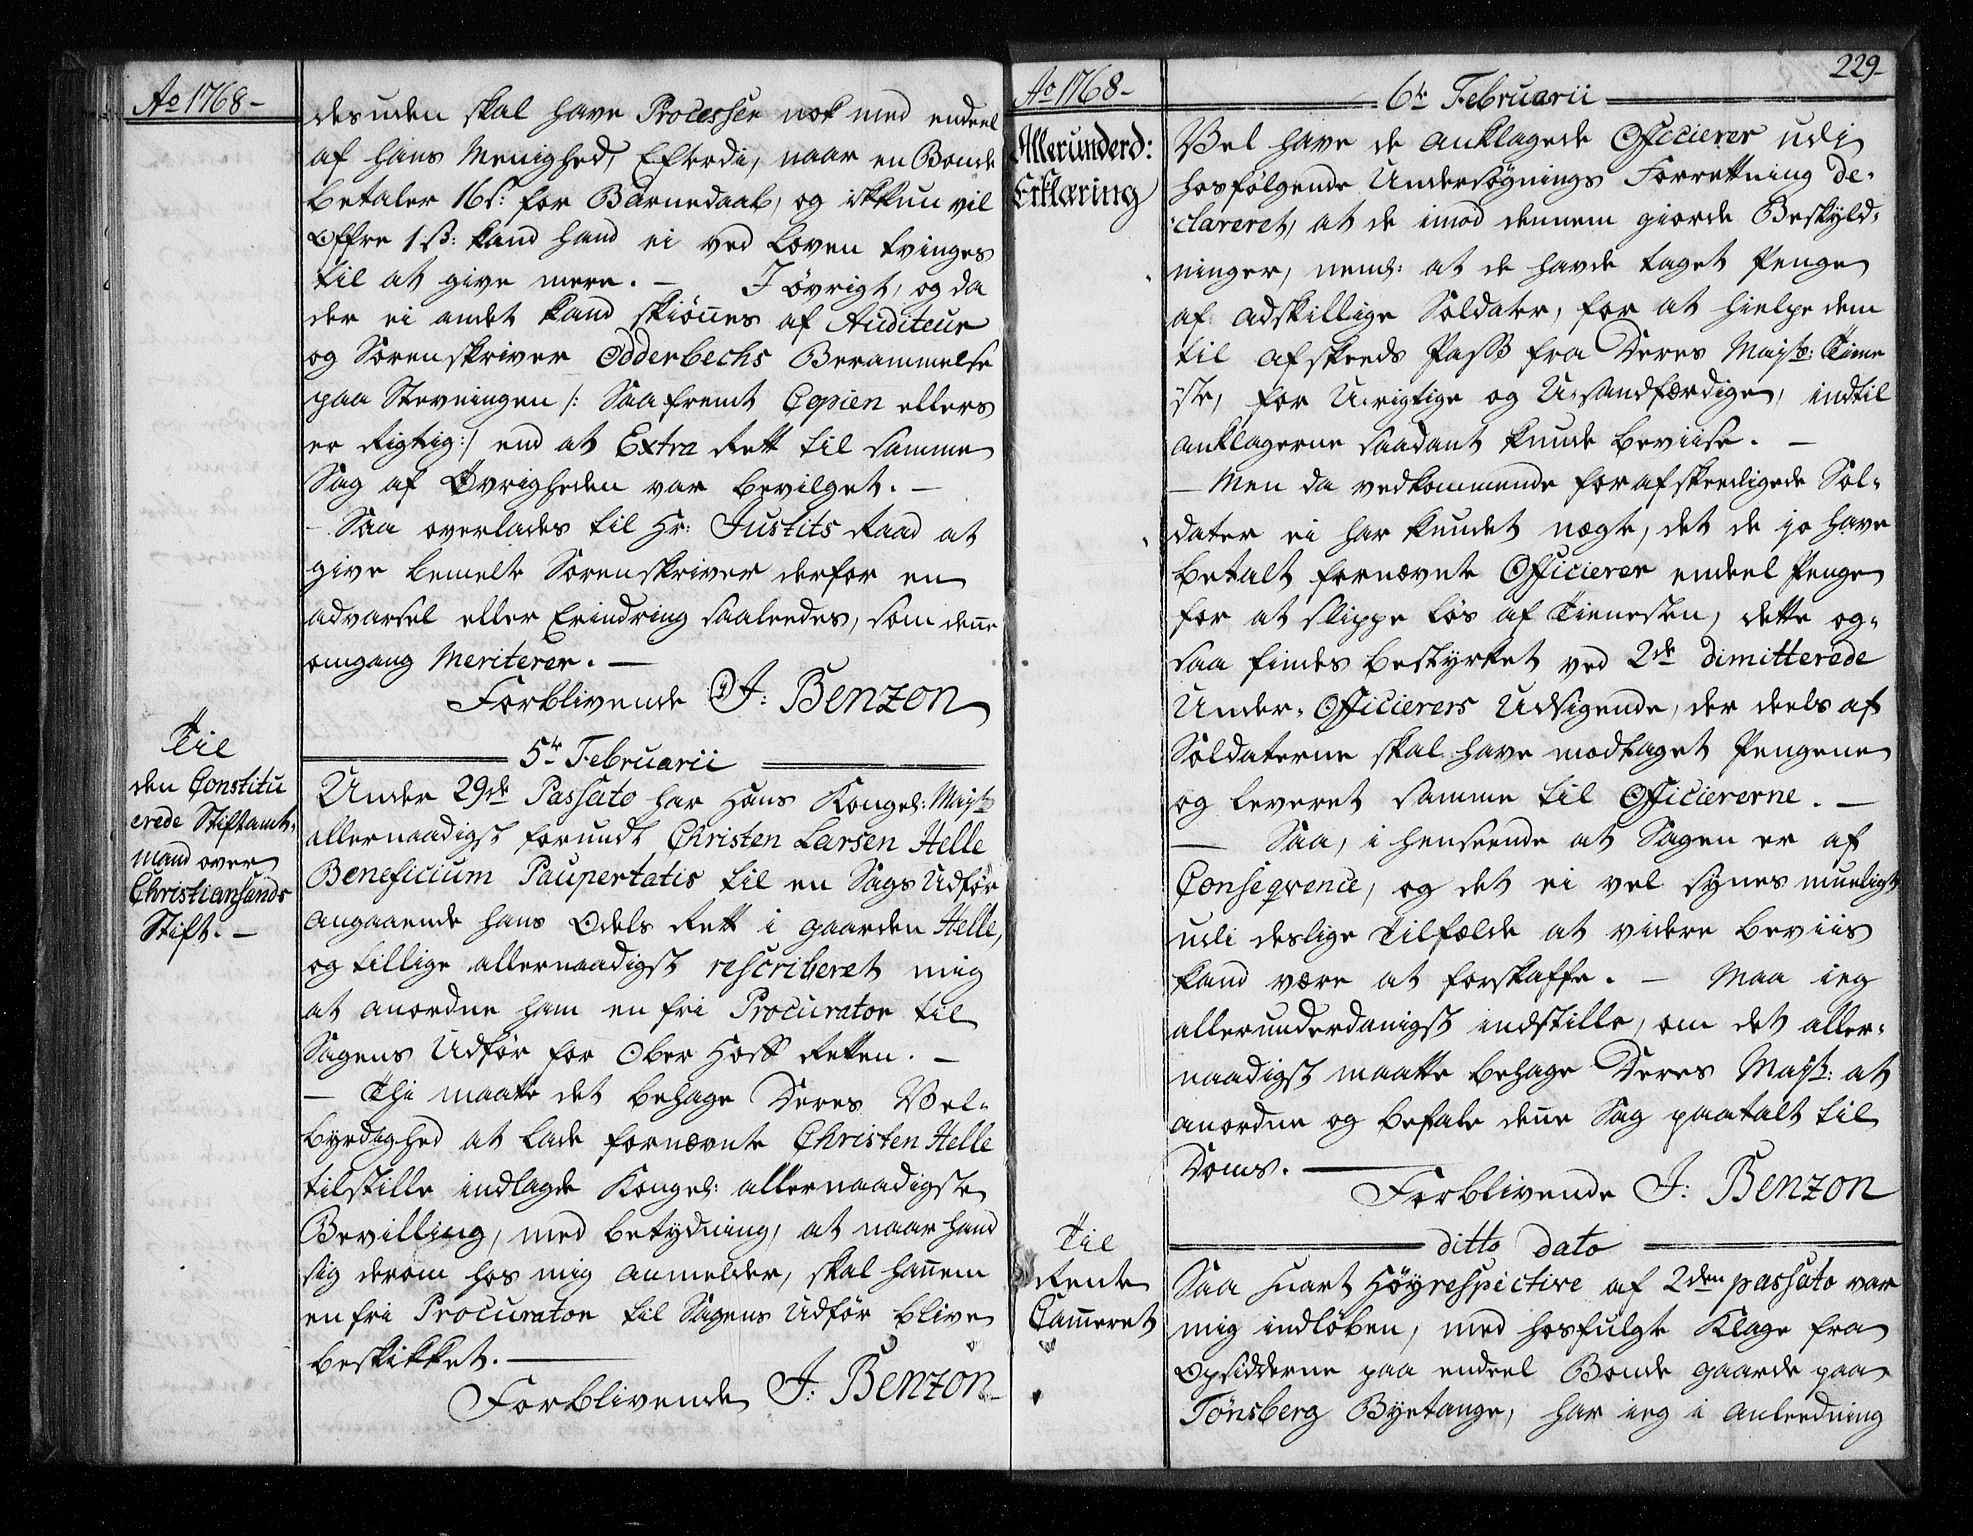 Ao 1768-
desuden skal have Processer nok med endeel
af hans Menighed, Efterdi, naar en Bonde
betaler 16s: for Barnedaab, og ikkun vil
Offre 1 ß: kand hand ei ved Loven tvinges
til at give mere. - I øvrigt, og da
der ei andet kand skiønnes af Auditeur
og Sorenskriver Odderbechs Berammelse
paa Stevningen /: Saafremt Copien ellers
er Rigtig :/ end at Extra Rett til samme
Sag af Øvrigheden var bevilget. -
- Saa overlades til Hr: Justits Raad at
give bemelte Sorenskriver derfor en
advarsel eller Erindring saaleedes, som denne
omgang Meriterer. -
Forblivende J: Benzon
Til
den Constitu
erede Stiftamt-
mand over
Christiansands
Stift. -
5te Februarii
Under 29de Passato har Hans Kongel: Mayst
allernaadigst forundt Christen Larsen Helle
Beneficium Paupertatis til en Sags Udfør
angaaende hans Odels Rett i gaarden Helle,
og tillige allernaadigst rescriberet mig
at anordne ham en fri Procurator til
Sagens Udfør for Ober Hoff Retten. -
- Thi maatte det behage Deres Vel-
byrdighed at lade fornævnte Christen Helle
tilstille indlagde Kongel: allernaadigste
Bevilling, med betydning, at naar hand
sig derom hos mig anmelder, skal hannem
en fri Procurator til Sagens Udfør blive
beskikket. -
Forblivende J: Benzon
229-
Ao 1768-
6te Februarii
Allerunderd:
Erklæring
Vel have de anklagede Officierer udi
hosfølgende Undersøgnings Forrettning de-
clareret, at de imod dennem giorde Beskyld-
ninger, neml: at de havde taget Penge
af adskillige Soldater, for at hielpe dem
til afskeeds Pass fra Deres Mayst: Tiene
ste, for U-rigtige og U-sandfærdige, indtil
anklagerne saadant kunde beviise. -
- Men da vedkommende forafskeedigede Sol-
dater ei har kundet nægte, det de jo have
betalt fornævnte Officierer endeel Penge
for at slippe løs af Tienesten, dette og-
saa findes bestyrket ved 2de dimitterede
Under-Officierers Udsigende, der deels af
Soldaterne skal have modtaget Pengene
og leveret samme til Officiererne. -
- Saa, i henseende at Sagen er af
Conseqvence, og det ei vel synes mueligt
udi deslige Tilfælde at videre beviis
kand være at forskaffe. - Maa ieg
allerunderdanigst indstille, om det aller-
naadigst maatte behage Deres Mayst: at
anordne og befale denne Sag paatalt til
Doms. -
Forblivende J: Benzon
Til
Rente
Cammeret
ditto dato
Saa snart Høyrespictive af 2den passato var
mig indløben, med hosfulgte Klage fra
Opsidderne paa endeel Bonde gaarde paa
Tønsberg Byetange, har ieg i Anleedning